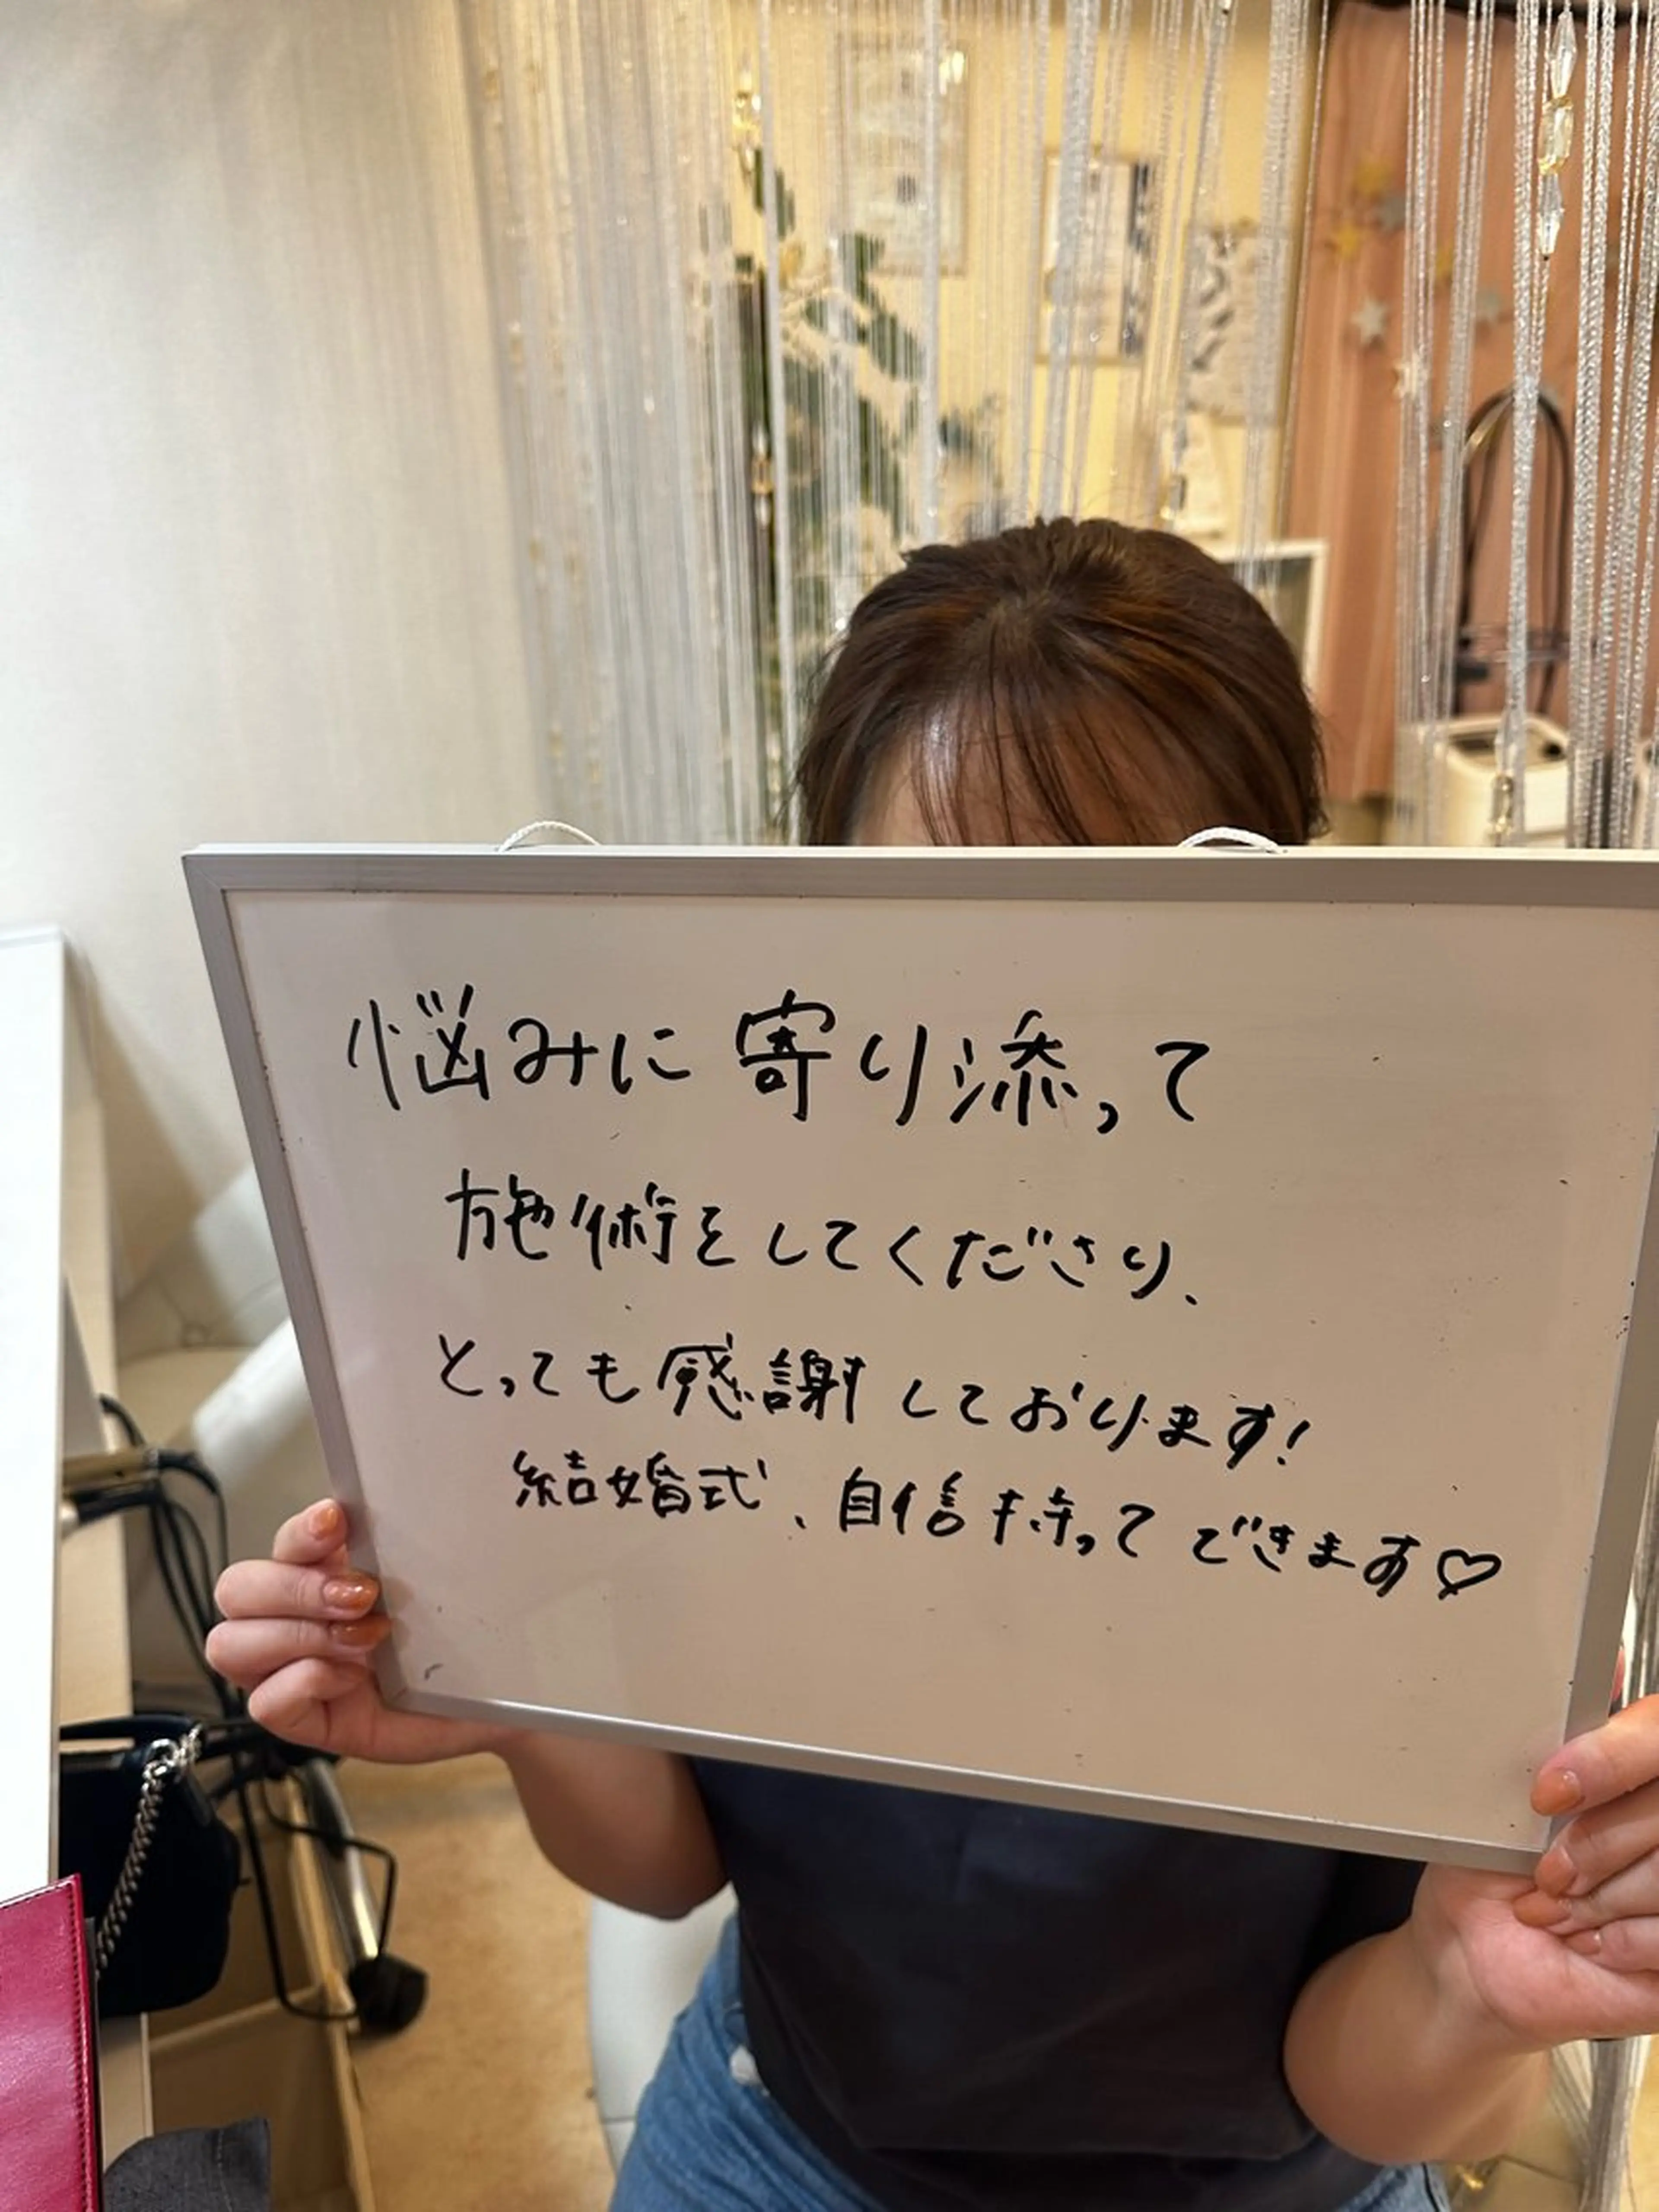 悩みに寄り添って
施術をしてくださり、
とっても感謝しております!
結婚式、自信持ってできます♡